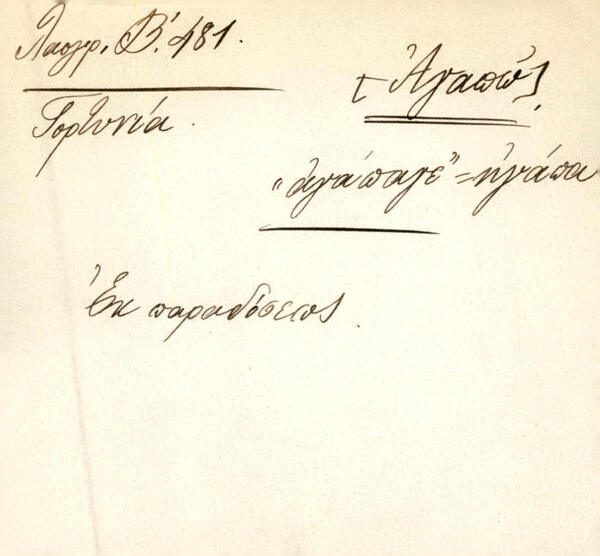 Λαογρ. Β΄. 481.
Γορτυνία.
[Ἀγαπῶ],
"ἀγάπαγε" = ἠγάπα
Ἐκ παραδόσεως.